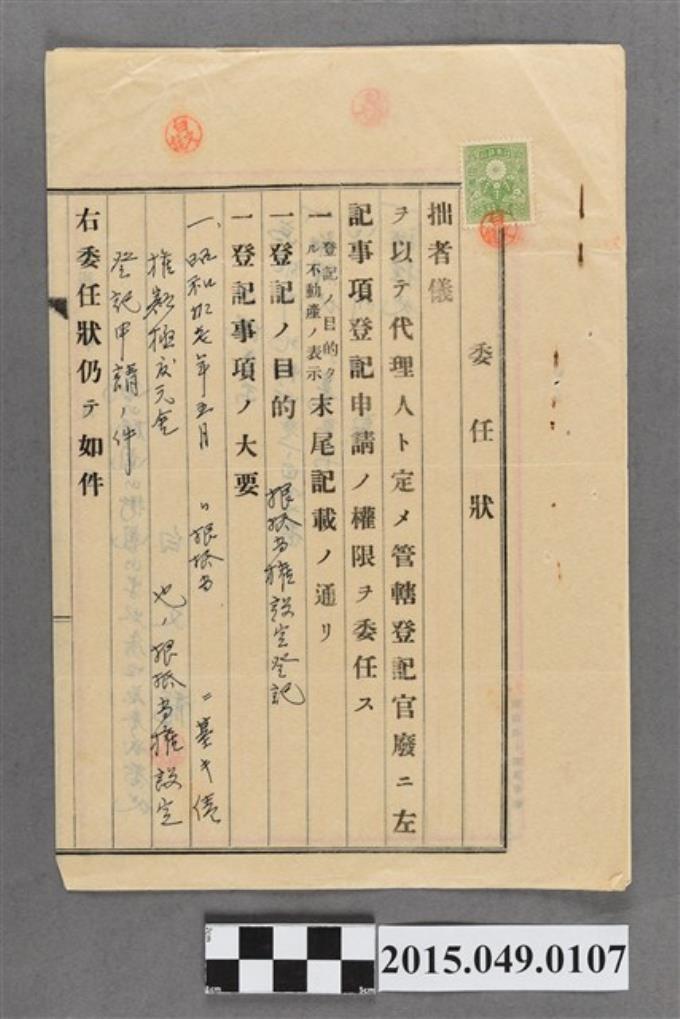 委任狀
拙者儀
ヲ以テ代理人ト定メ管轄登記官廢ニ左
記事項登記申請ノ權限ヲ委任ス
一登記ノ目的タル不動產ノ表示 末尾記載ノ通リ
一登記ノ目的 根抵当権設定登記
一登記事項ノ大要
一、昭和 年五月 根抵当 ニ基キ債
権 極度元金 也ノ根抵当権設定
登記申請ノ件
右委任狀仍テ如件
2015.049.0107